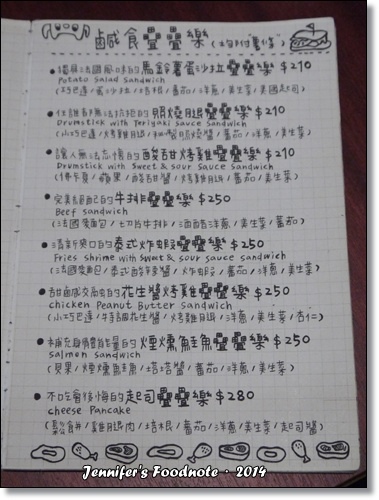 鹹食疊疊樂(均附薯條)
擴展法國風味的馬鈴薯蛋沙拉疊疊樂$210
Potato Salad Sandwich
(巧巴達/蛋沙拉/培根/蕃茄/洋蔥/美生菜/美國起司)
任誰都無法抗拒的閃燒腿疊疊樂$210
Drumstick with Teriyaki sauce Sandwich
(小巧巴達/烤雞腿/燒醬/蕃茄/洋蔥/美生菜)
讓人無法忘懷的酸甜烤雞疊疊樂$210
Drumstick with Sweet & sour sauce Sandwich
(佛卡夏/蘋果/酸甜醬/烤雞腿/蕃茄/美生菜)
完美絕配的牛排疊疊樂$250
Beef sandwich
(法國麵包/牛排/酒醋洋蔥/美生菜/蕃茄)
清新爽口的泰式炸蝦疊疊樂$250
Fries shrime with sweet & sour sauce sandwich
(法國麵包/泰式酸辣醬/炸蝦/蕃茄/洋蔥/美生菜)
甜鹹交融的花生醬烤雞疊疊樂$250
chicken Peanut Butter sandwich
(小巧巴達/特調花生醬/烤雞腿/洋蔥/美生菜/杏仁)
補充身體能量的煙燻鮭魚疊疊樂$250
salmon Sandwich
(貝果/煙燻鮭魚/塔塔醬/蕃茄/洋蔥/美生菜)
不吃會後悔的起司疊疊樂$280
cheese Pancake
(鬆餅/雞腿肉/培根/蕃茄/洋蔥/美生菜/起司醬)
Jennifer's Foodnote · 2014